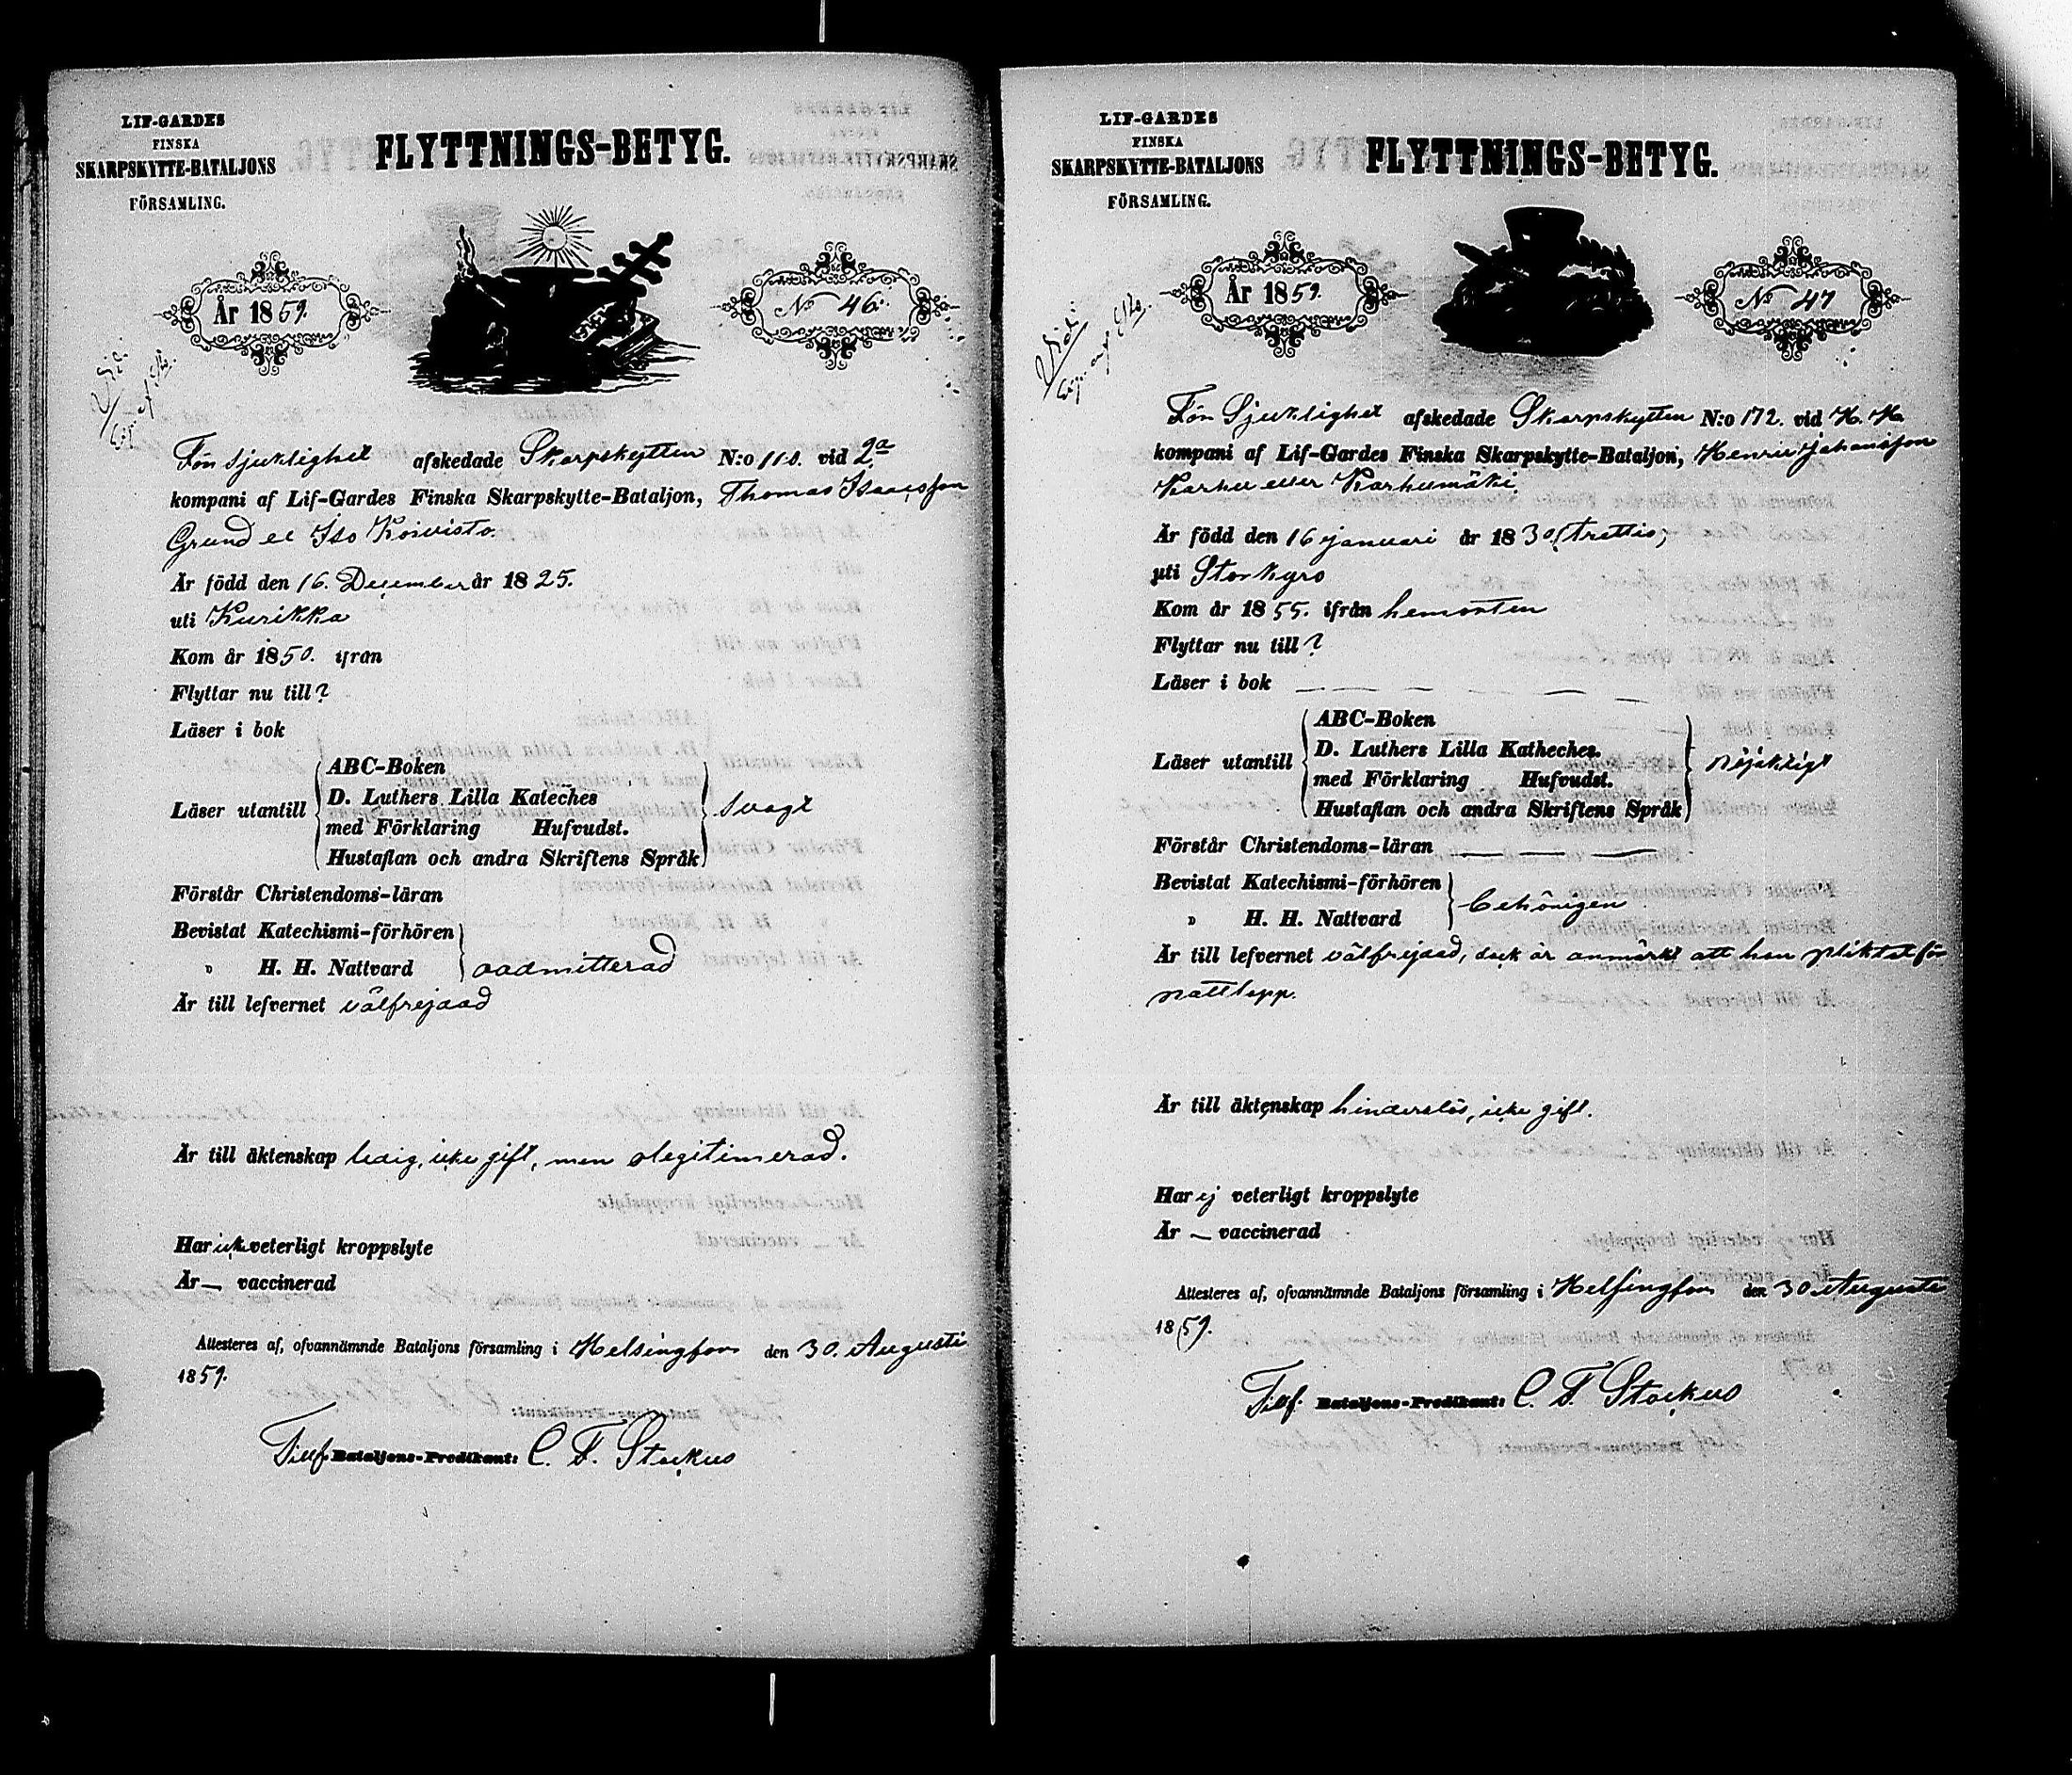 LIF-GARDES
FINSKA
SKARPSKYTTE-BATALJONS
FÖRSAMLING.
FLYTTNINGS-BETYG.
År 1859.
No 46.
För sjuklighet afskedade Skarpskytten N:o 110. vid 2a
kompani af Lif-Gardes Finska Skarpskytte-Bataljon, Thomas Isaacsson
Grund el Iso Koivisto.
Är född den 16. December år 1825.
uti Kurikka
Kom år 1850. ifrån
Flyttar nu till?
Läser i bok
Läser utantill
ABC-Boken
D. Luthers Lilla Kateches
med Förklaring Hufvudst.
Hustaflan och andra Skriftens Språk
svagt
Förstår Christendoms-läran
Bevistat Katechismi-förhören
" H. H. Nattvard
oadmitterad
Är till lefvernet välfrejdad
Är till äktenskap ledig, icke gift, men olegitimerad.
Har icke veterligt kroppslyte
Är — vaccinerad
Attesteres af, ofvannämnde Bataljons församling i Helsingfors den 30. Augusti
1859.
Bataljons-Predikant: C. F. Stockus
LIF-GARDES
FINSKA
SKARPSKYTTE-BATALJONS
FÖRSAMLING.
FLYTTNINGS-BETYG.
År 1859.
No 47
För Sjuklighet afskedade Skarpskytten N:o 172. vid H. H.
kompani af Lif-Gardes Finska Skarpskytte-Bataljon, Henric Johansson
Karhu eller Karhumäki.
Är född den 16 januari år 1830 (trettio)
uti Storkyro
Kom år 1855. ifrån hemorten
Flyttar nu till?
Läser i bok — — — — —
Läser utantill
ABC-Boken
D. Luthers Lilla Katheches.
med Förklaring Hufvudst.
Hustaflan och andra Skriftens Språk
nöjaktigt
Förstår Christendoms-läran — — —
Bevistat Katechismi-förhören
" H. H. Nattvard
behörigen
Är till lefvernet välfrejdad, dock är anmärkt att han pliktat för
nattlopp.
Är till äktenskap hinderslös, icke gift.
Har ej veterligt kroppslyte
Är — vaccinerad
Attesteres af, ofvannämnde Bataljons församling i Helsingfors den 30 Augusti
1859.
Bataljons-Predikant: C. F. Stockus